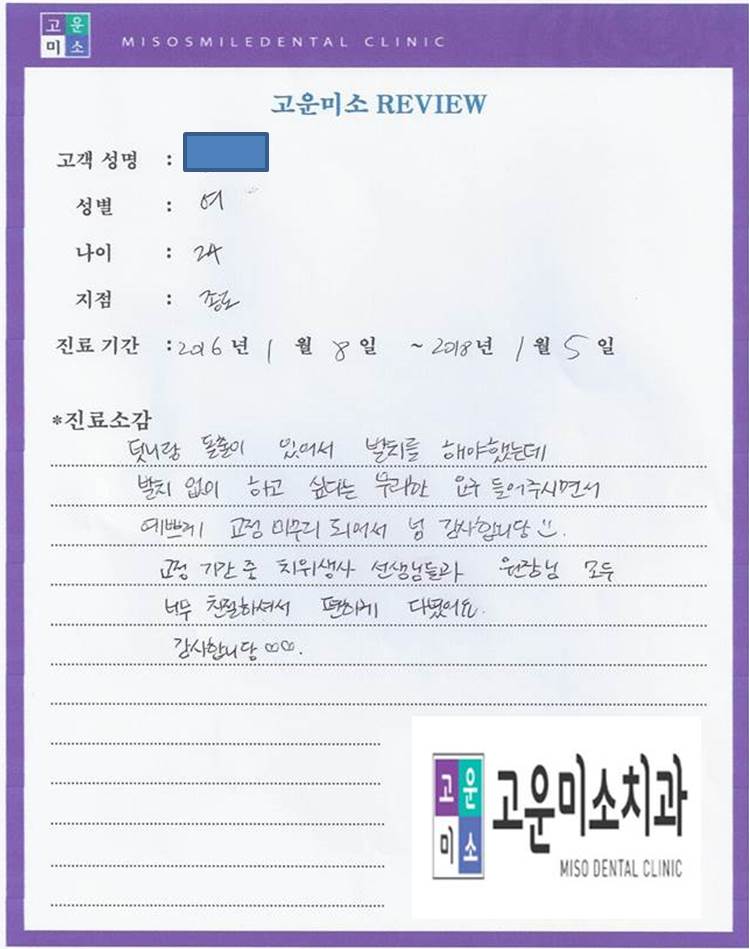 고운
미소
MISOSMILEDENTAL CLINIC
고운미소 REVIEW
고객 성명 :
성별 : 여
나이 : 24
지점 : 종로
진료 기간 : 2016 년 1 월 8 일 ~ 2018 년 1 월 5 일
*진료소감
덧니랑 돌출이 있어서 발치를 해야했는데
발치 없이 하고 싶다는 무리한 요구 들어주시면서
예쁘게 교정 마무리 되어서 넘 감사합니당
교정 기간 중 치위생사 선생님들과 원장님 모두
너무 친절하셔서 편하게 다녔어요.
감사합니당 ♡♡.
고운
미소
고운미소치과
MISO DENTAL CLINIC